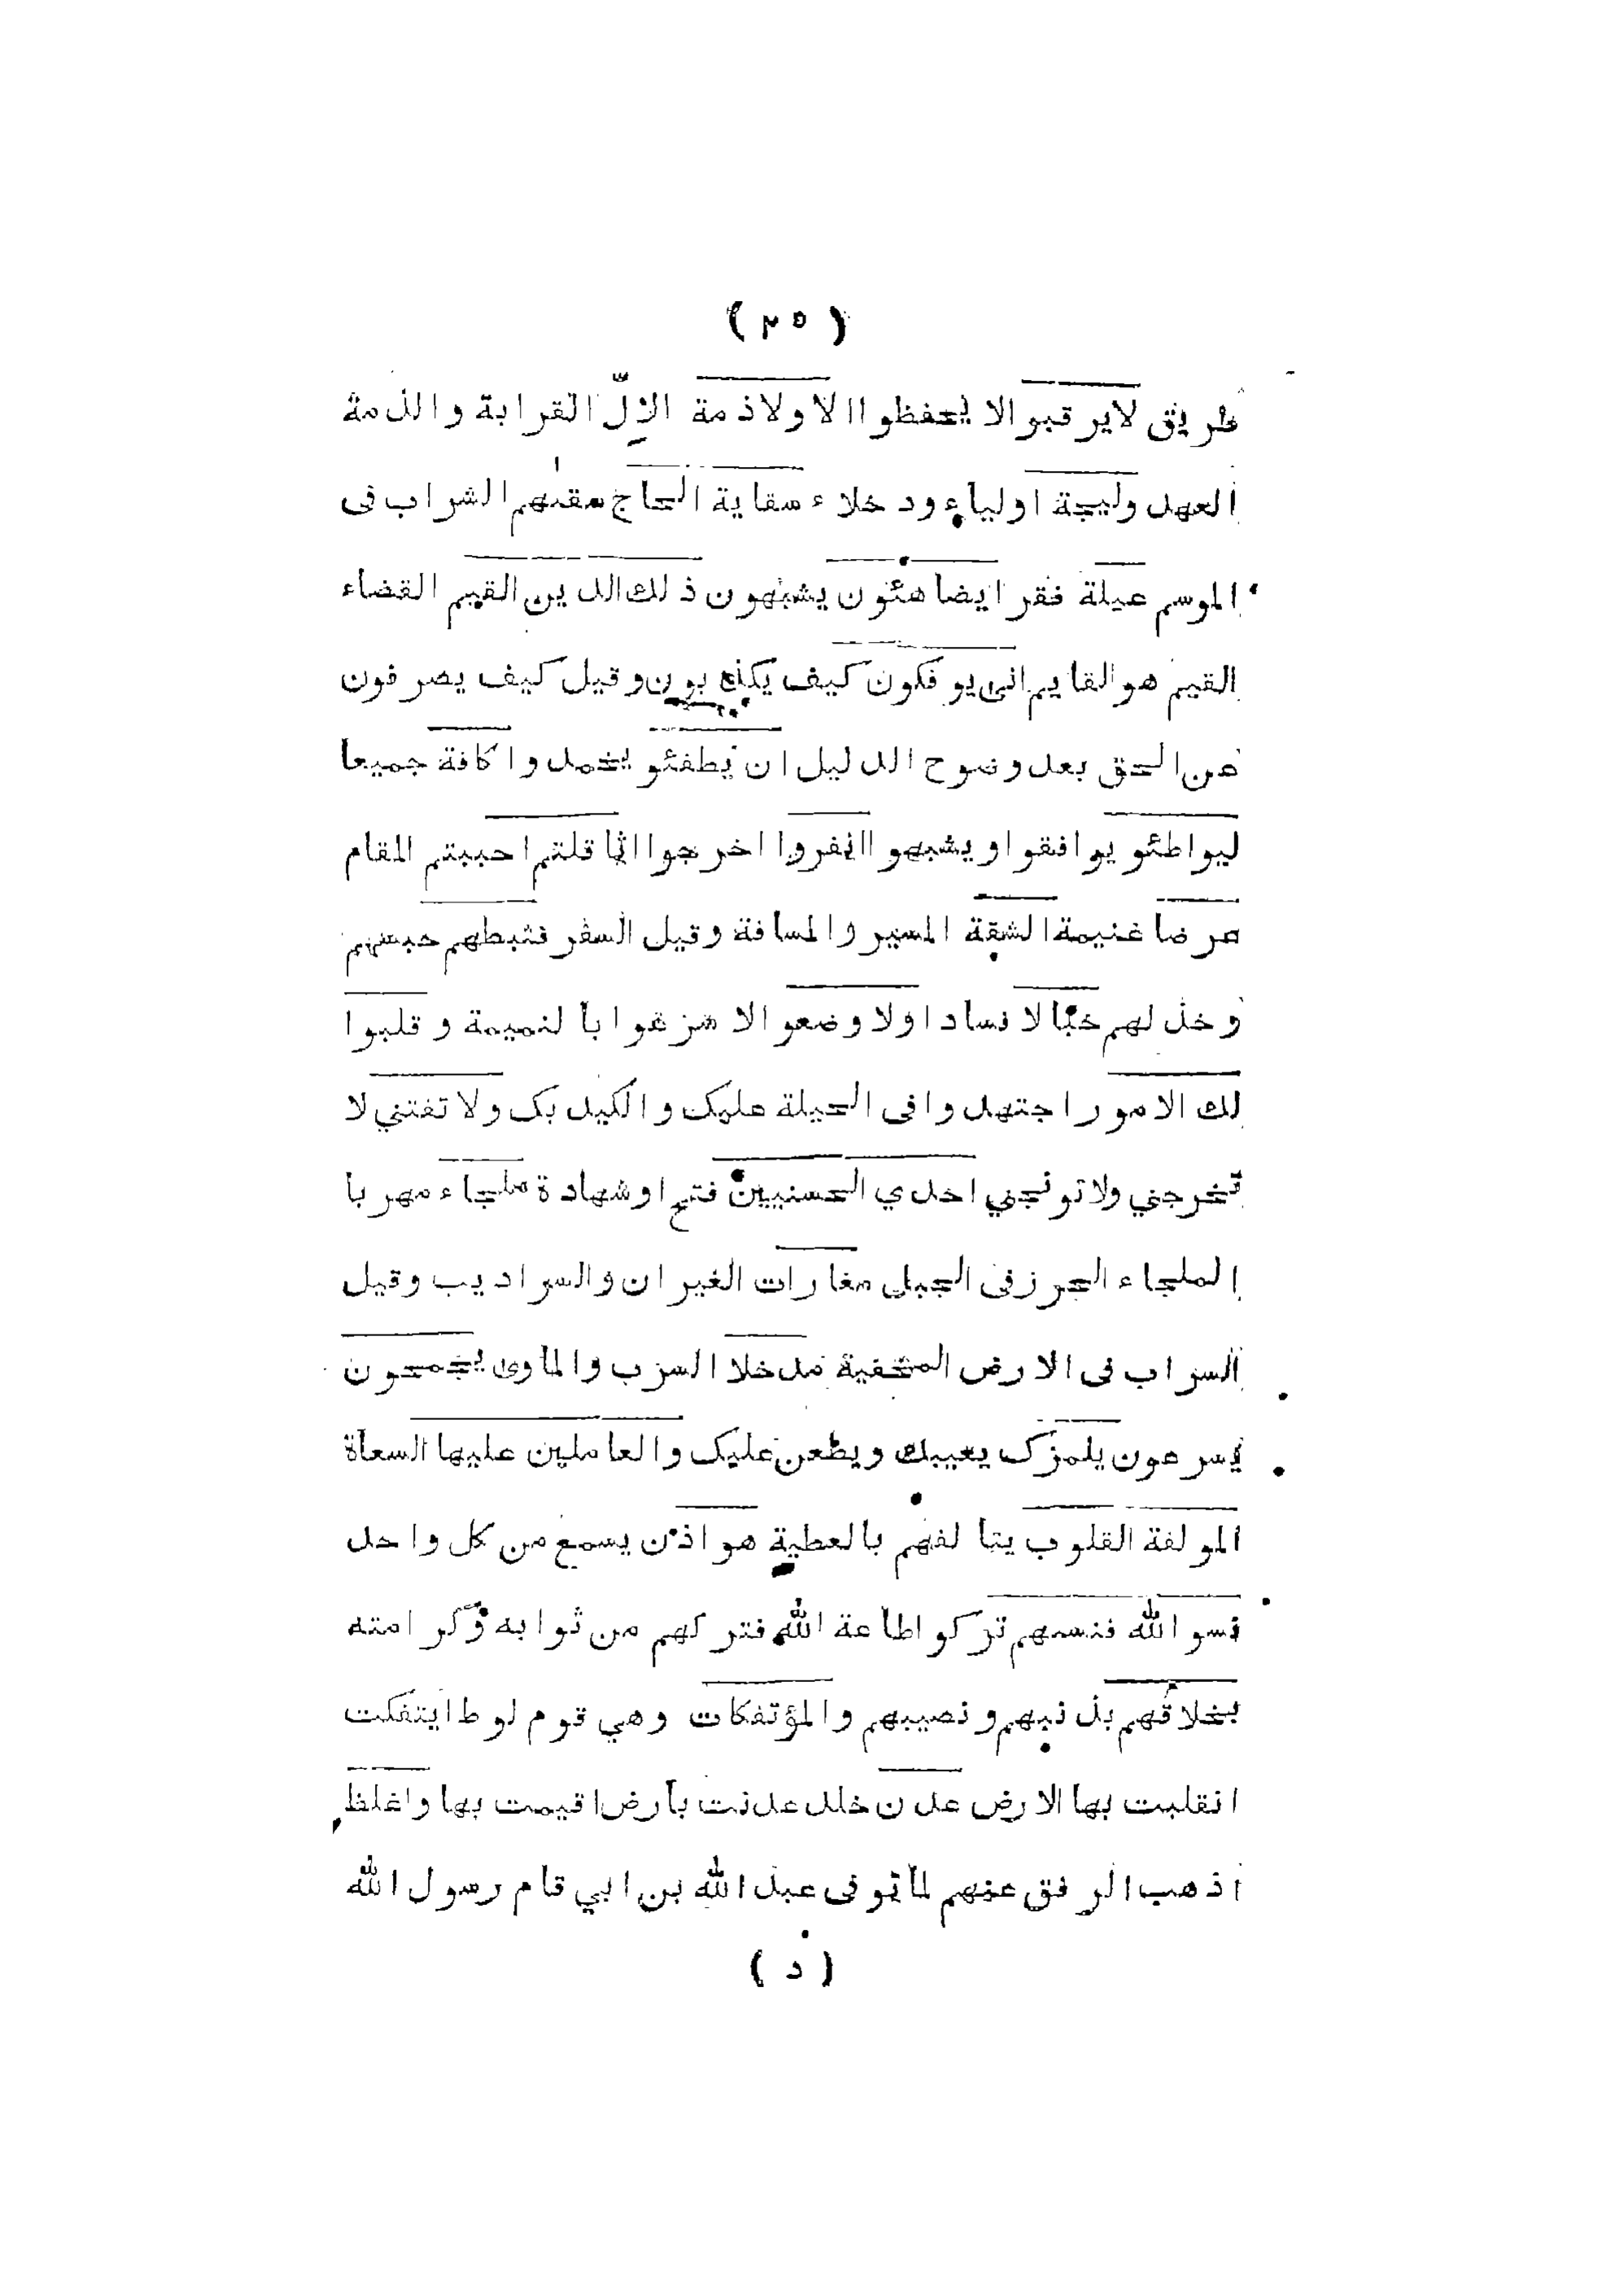 ( ٢٥ )
طريق لايرقبوا لا يحفظوا الا ولاذمة الإلّ القرابة والذمة
العهد وليجة اولياء ودخلاء سقاية الحاج سقيهم الشراب فى
الموسم عيلة فقرا يضاهئون يشبهون ذلك الدين القيم القضاء
القيم هو القايم انى يوفكون كيف يكذبون وقيل كيف يصرفون
عن الحق بعد وضوح الدليل ان يطفئو يخمدوا كافة جميعا
ليواطئو يوافقوا ويشبهوا انفروا اخرجوا اثاقلتم احببتم المقام
عرضا غنيمة الشقة المسير والمسافة وقيل السفر فثبطهم حبسهم
وخذلهم خبالا فسادا ولا وضعوا لا هزعوا بالنميمة وقلبوا
لك الامور اجتهدوا فى الحيلة عليك والكيد بك ولا تفتني لا
تخرجني ولا توبخني احدي الحسنيين فتح او شهادة ملجاء مهربا
الملجاء الحرز فى الجبل مغارات الغيران والسراديب وقيل
السراب فى الارض المخفية مدخلا السرب والماوى يجمحون
يسرعون يلمزك يعيبك ويطعن عليك والعاملين عليها السعاة
المولفة القلوب يتا لفهم بالعطية هو اذن يسمع من كل واحد
نسوا الله فنسيهم تركوا طاعة الله فتركهم من ثوابه وكرامته
بخلاقهم بذنبهم ونصيبهم والمؤتفكات وهي قوم لوط ايتفكت
انقلبت بها الارض عدن خلد عدنت بارض اقيمت بها واغلظ
اذهب الرفق عنهم لما توفى عبد الله بن ابي قام رسول الله
( د )